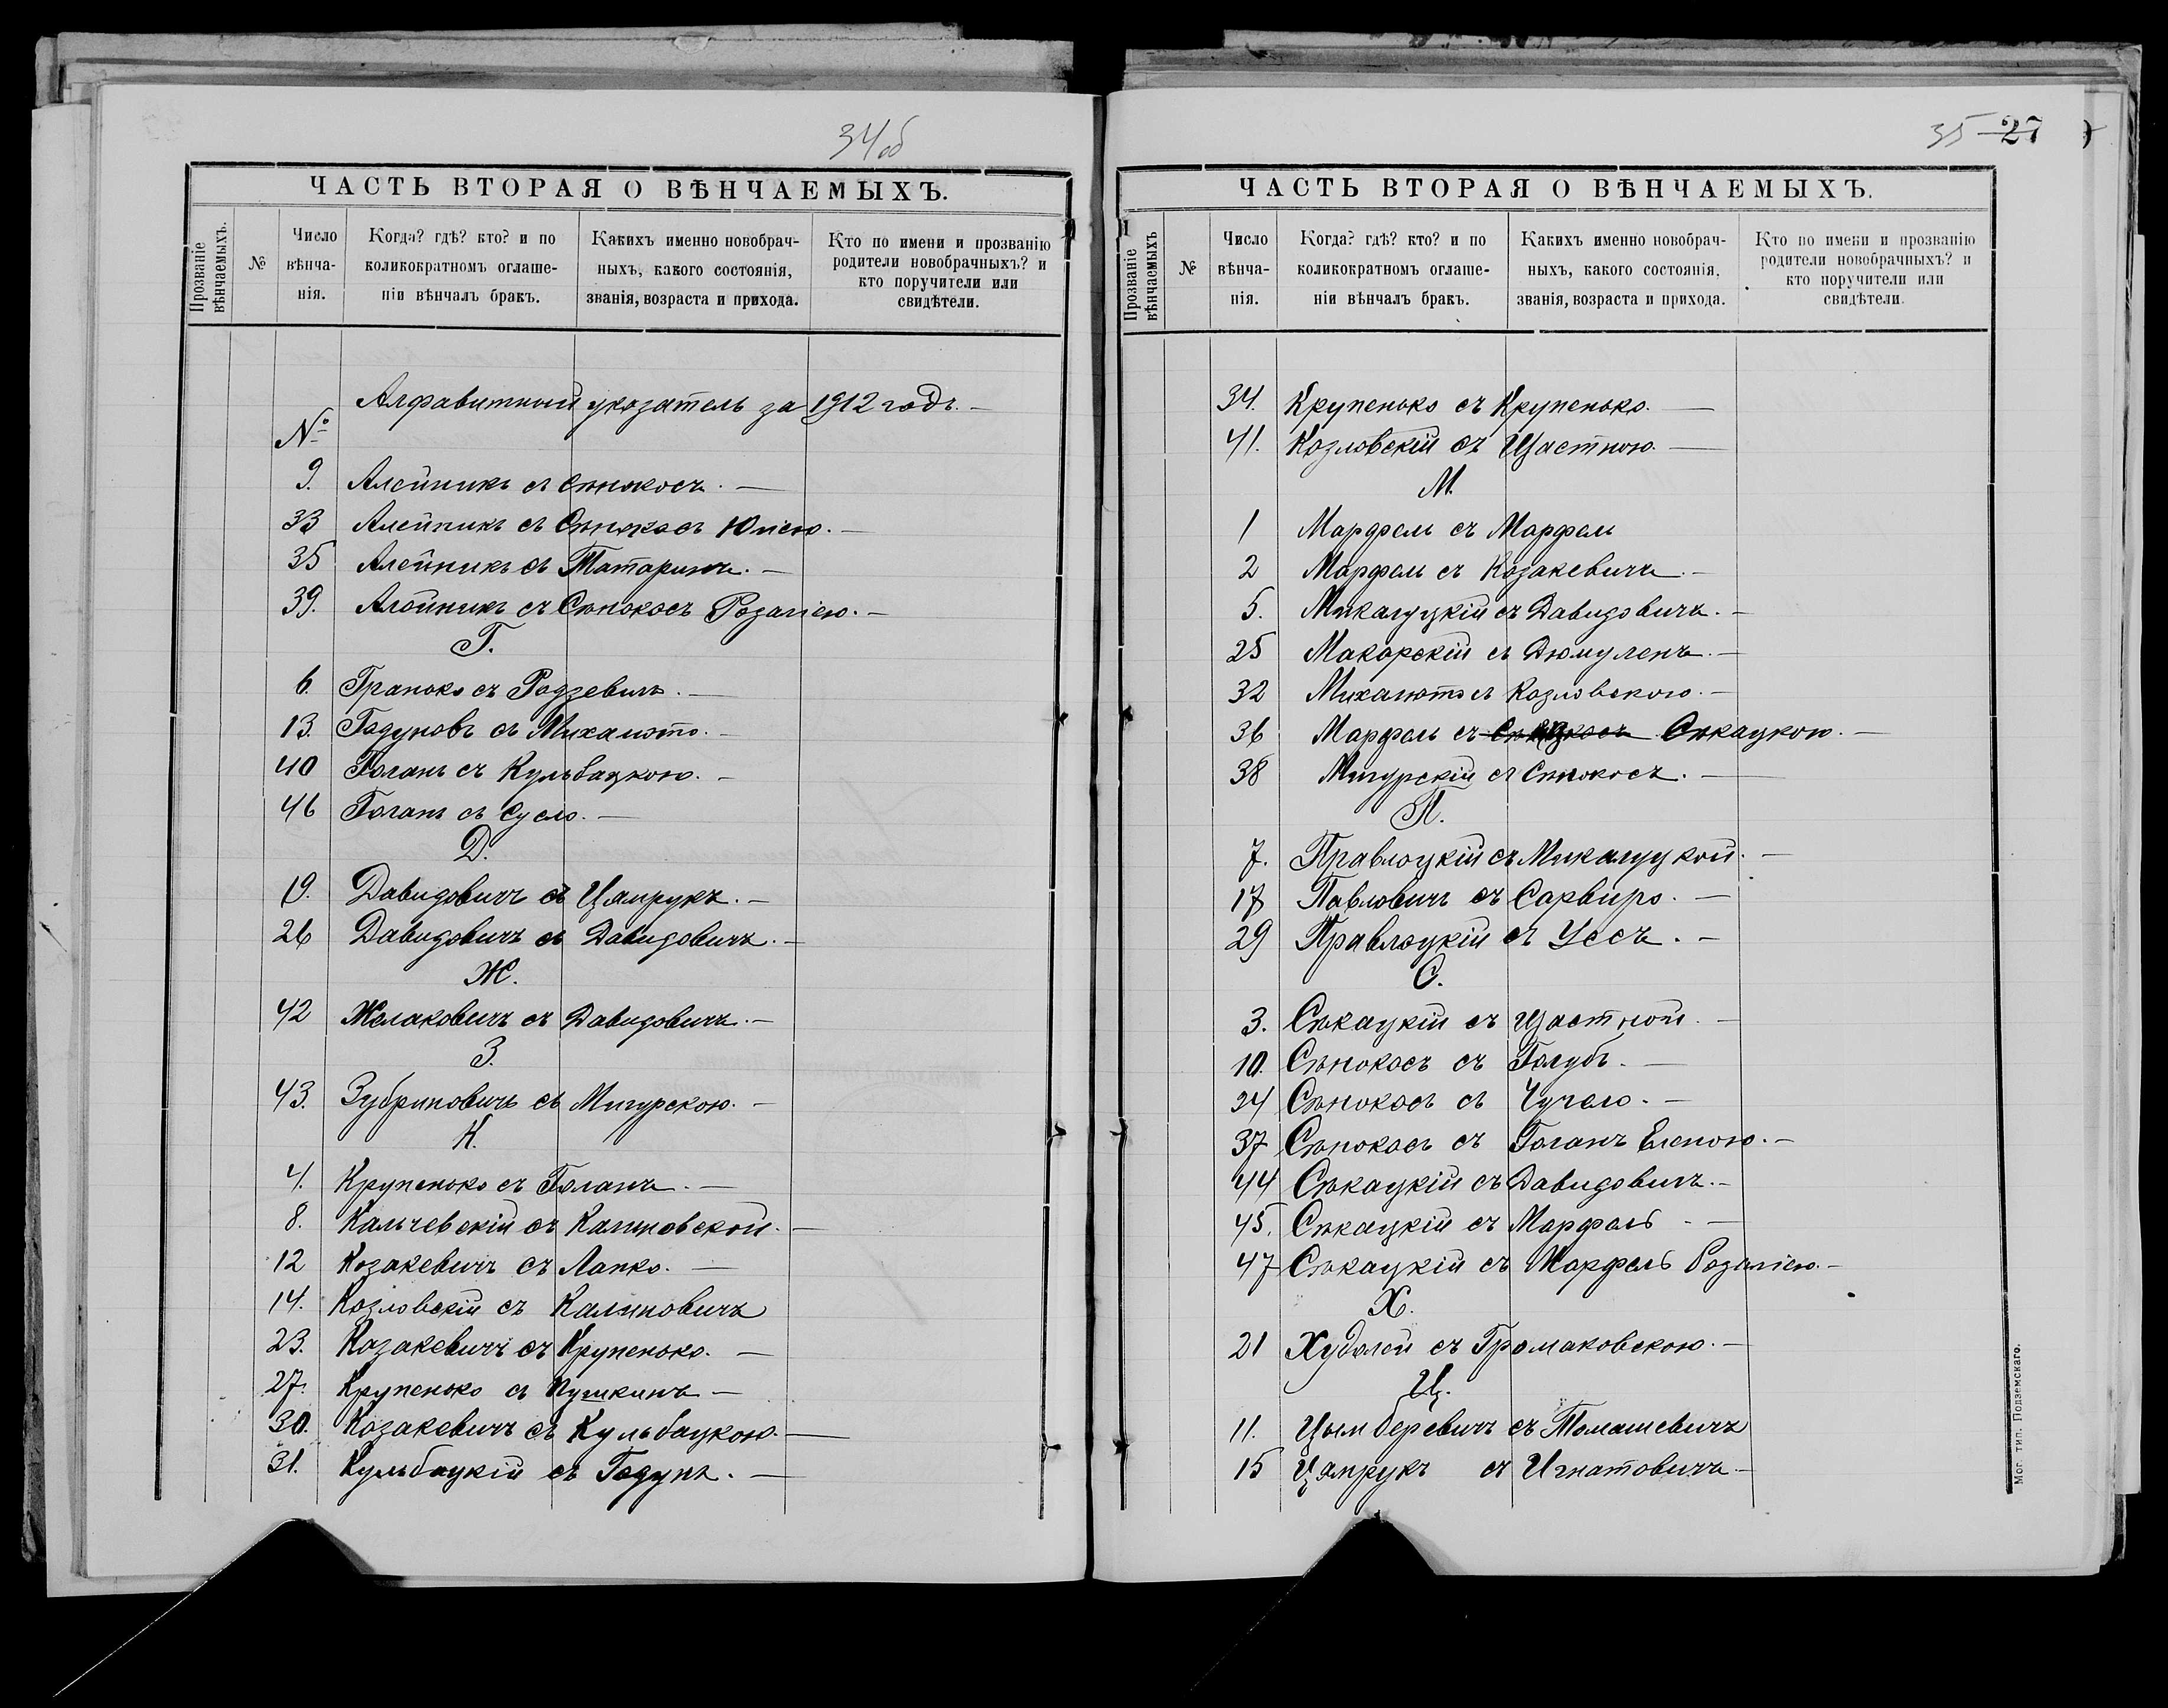 34об
ЧАСТЬ ВТОРАЯ О ВѢНЧАЕМЫХЪ.
Прозваніе вѣнчаемыхъ.
№
Число вѣнча-нія.
Когда? гдѣ? кто? и по коликократномъ оглаше-ніи вѣнчалъ бракъ.
Какихъ именно новобрач-ныхъ, какого состоянія, званія, возраста и прихода.
Кто по имени и прозванію родители новобрачныхъ? и кто поручители или свидѣтели.
Алфавитный указатель за 1912 годъ.—
№
9. Алейникъ съ Сѣнокосъ.—
33 Алейникъ съ Сѣнокосъ Юліею.—
35 Алейникъ съ Татаринъ.—
39. Алейникъ съ Сѣнокосъ Розаліею.—
Г.
6. Гранько съ Родзевичъ.—
13. Годуновъ съ Михалюто.—
40 Голанъ съ Кульбацкою.—
46 Голанъ съ Сусло.—
Д.
19. Давидовичъ съ Цамрукъ.—
26 Давидовичъ съ Давидовичъ.—
Ж.
42 Желаковичъ съ Давидовичъ.—
З.
43. Зубриновичъ съ Мигурскою.—
К.
4. Крупенько съ Голанъ.—
8. Кальчевскій съ Калиновской.—
12 Козакевичъ съ Лапко.—
14. Козловскій съ Калиновичъ
23. Козакевичъ съ Крупенько.—
27. Крупенько съ Пушкинъ—
30. Козакевичъ съ Кульбацкою.—
31. Кульбацкій съ Годунъ.—
35 27
ЧАСТЬ ВТОРАЯ О ВѢНЧАЕМЫХЪ.
Прозваніе вѣнчаемыхъ
№
Число вѣнча-нія.
Когда? гдѣ? кто? и по коликократномъ оглаше-ніи вѣнчалъ бракъ.
Какихъ именно новобрач-ныхъ, какого состоянія, званія, возраста и прихода.
Кто по имени и прозванію родители новобрачныхъ? и кто поручители или свидѣтели.
34. Крупенько съ Крупенько.—
41. Козловскій съ Щастною.—
М.
1 Марфель съ Марфель
2 Марфель съ Козакевичъ.—
5. Микалуцкій съ Давидовичъ.—
25 Макарскій съ Дюмуленъ.—
32 Михалюто съ Козловскою.—
36 Марфель съ Сѣкацкою.—
38 Мигурскій съ Сѣнокосъ.—
П.
7. Правлоцкій съ Микалуцкой.—
17 Павловичъ съ Сарвиро.—
29 Правлоцкій съ Уссъ.—
С.
3. Сѣкацкій съ Щастной.—
10. Сѣнокосъ съ Голубъ.—
24 Сѣнокосъ съ Чучело.—
37 Сѣнокосъ съ Голанъ Еленою.—
44 Сѣкацкій съ Давидовичъ.—
45. Сѣкацкій съ Марфель.—
47 Сѣкацкій съ Марфель Розаліею.—
Х.
21 Худолей съ Громаковскою.—
Ц.
11. Цымберевичъ съ Томашевичъ
15 Цамрукъ съ Игнатовичъ.—
Мог. тип. Подземскаго.